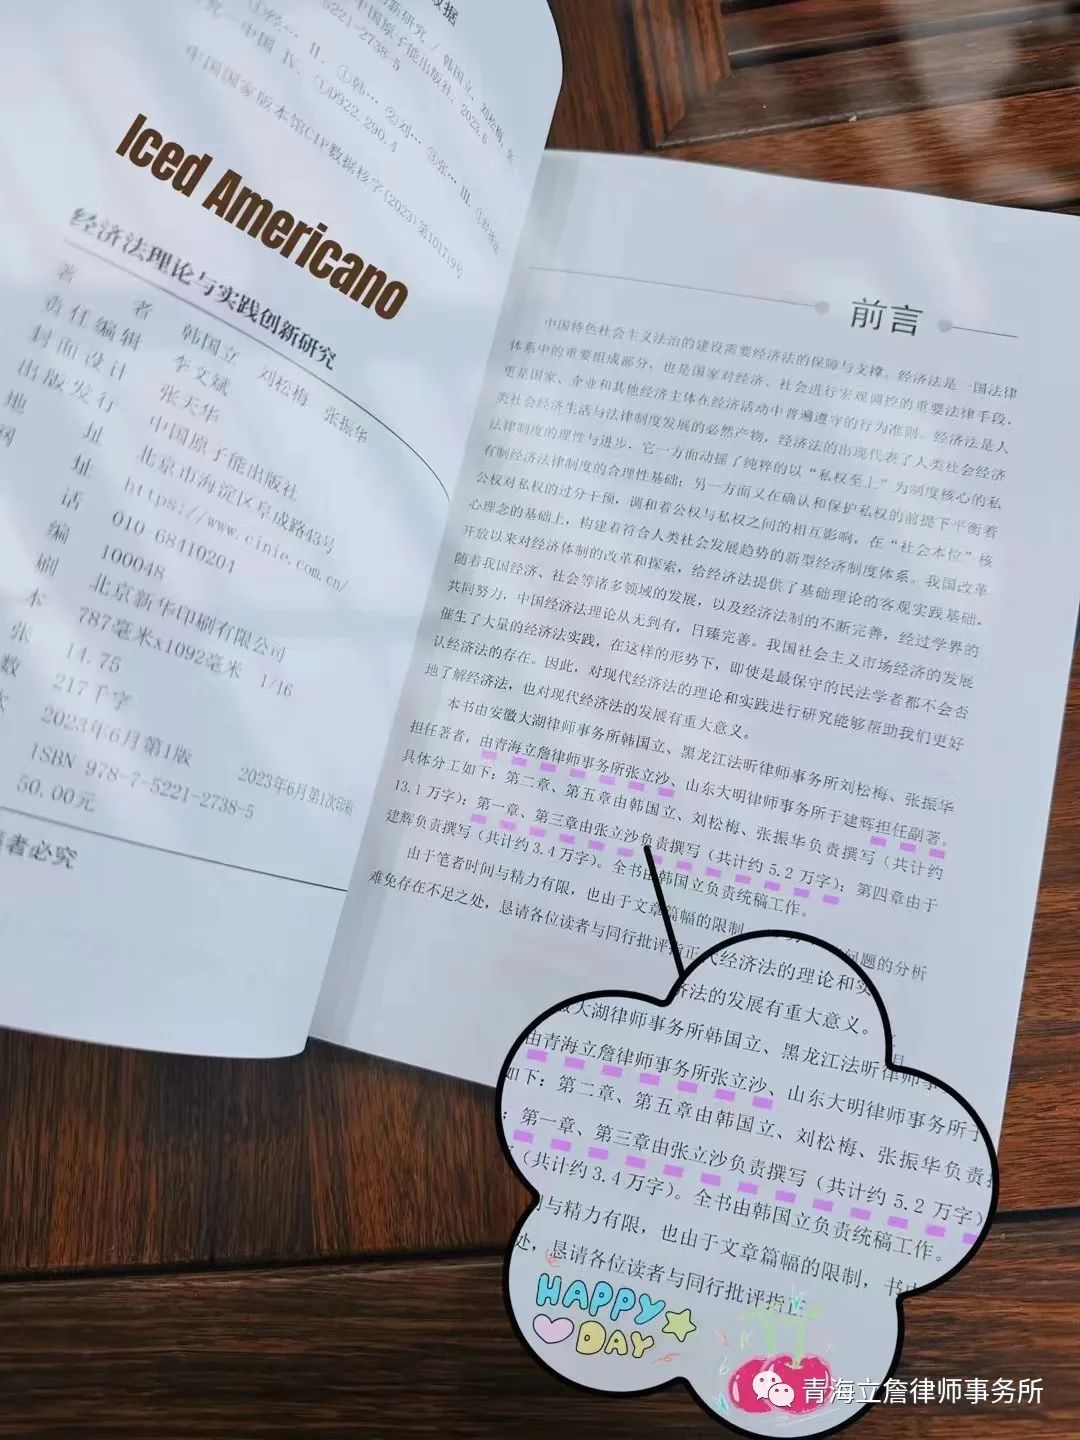 数据
新研究 / 韩国立, 刘松梅, 张
中国原子能出版社, 2023.6
5221-2738-5
究-中国 Ⅳ. ①D922.290.4
①经… Ⅱ. ①韩… ②刘… ③张… Ⅲ. ①经济法
中国国家版本馆CIP数据核字(2023)第101719号
Iced Americano
经济法理论与实践创新研究
著 者 韩国立 刘松梅 张振华
责任编辑 李文斌
封面设计 张天华
出版发行 中国原子能出版社
地 址 北京市海淀区阜成路43号
网 址 https://www.cinie.com.cn/
话 010-68410204
编 100048
刷 北京新华印刷有限公司
本 787毫米x1092毫米 1/16
张 14.75
数 217千字
次 2023年6月第1版 2023年6月第1次印刷
ISBN 978-7-5221-2738-5
50.00元
者必究
前言
中国特色社会主义法治的建设需要经济法的保障与支撑。经济法是一国法律
体系中的重要组成部分，也是国家对经济、社会进行宏观调控的重要法律手段，
更是国家、企业和其他经济主体在经济活动中普遍遵守的行为准则。经济法是人
类社会经济生活与法律制度发展的必然产物，经济法的出现代表了人类社会经济
法律制度的理性与进步。它一方面动摇了纯粹的以“私权至上”为制度核心的私
有制经济法律制度的合理性基础；另一方面又在确认和保护私权的前提下平衡着
公权对私权的过分干预，调和着公权与私权之间的相互影响，在“社会本位”核
心理念的基础上，构建着符合人类社会发展趋势的新型经济制度体系。我国改革
开放以来对经济体制的改革和探索，给经济法提供了基础理论的客观实践基础，
随着我国经济、社会等诸多领域的发展，以及经济法制的不断完善，经过学界的
共同努力，中国经济法理论从无到有，日臻完善。我国社会主义市场经济的发展
催生了大量的经济法实践，在这样的形势下，即使是最保守的民法学者都不会否
认经济法的存在。因此，对现代经济法的理论和实践进行研究能够帮助我们更好
地了解经济法，也对现代经济法的发展有重大意义。
本书由安徽大湖律师事务所韩国立、黑龙江法昕律师事务所刘松梅、张振华
担任著者，由青海立詹律师事务所张立沙、山东大明律师事务所于建辉担任副著。
具体分工如下：第二章、第五章由韩国立、刘松梅、张振华负责撰写（共计约
13.1万字）；第一章、第三章由张立沙负责撰写（共计约5.2万字）；第四章由于
建辉负责撰写（共计约3.4万字）。全书由韩国立负责统稿工作。
由于笔者时间与精力有限，也由于文章篇幅的限制，
问题的分析
难免存在不足之处，恳请各位读者与同行批评指正
代经济法的理论和实
济法的发展有重大意义。
徽大湖律师事务所韩国立、黑龙江法昕律师事
由青海立詹律师事务所张立沙、山东大明律师事务所于
如下：第二章、第五章由韩国立、刘松梅、张振华负责
；第一章、第三章由张立沙负责撰写（共计约5.2万字）
（共计约3.4万字）。全书由韩国立负责统稿工作。
与精力有限，也由于文章篇幅的限制，书
处，恳请各位读者与同行批评指正
HAPPY
DAY
青海立詹律师事务所